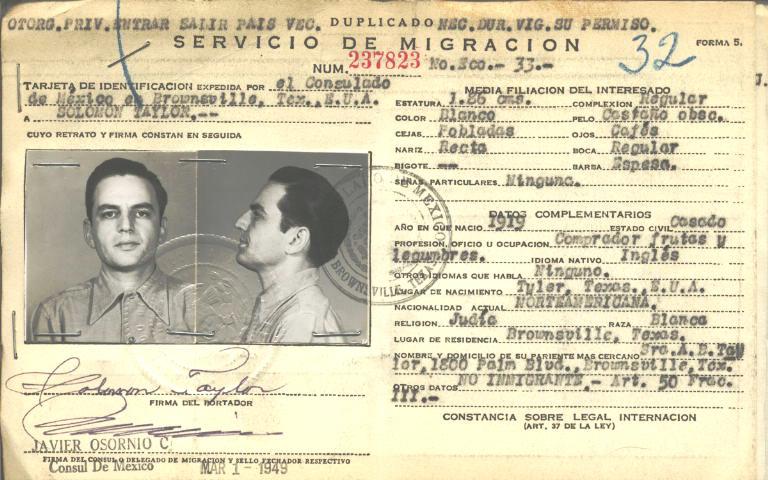 OTORG.PRIV.ENTRAR SALIR PAIS VEC. DUPLICADO NEC.DUR.VIG.SU PERMISO.
SERVICIO DE MIGRACION
32
FORMA 5.
NUM. 237823 No.Eco.- 33.-
TARJETA DE IDENTIFICACION EXPEDIDA POR el Consulado
de México en Brownsville, Tex., E.U.A.
A SOLOMON TAYLOR.--
CUYO RETRATO Y FIRMA CONSTAN EN SEGUIDA
Solomon Taylor
FIRMA DEL PORTADOR
JAVIER OSORNIO C
FIRMA DEL CONSUL O DELEGADO DE MIGRACION Y SELLO FECHADOR RESPECTIVO
Consul De Mexico MAR 1 - 1949
MEDIA FILIACION DEL INTERESADO
ESTATURA 1.86 cms. COMPLEXION Regular
COLOR Blanco PELO Castaño obsc.
CEJAS Pobladas OJOS Cafés
NARIZ Recta BOCA Regular
BIGOTE -- BARBA Espesa.
SEÑAS PARTICULARES Ninguna.
DATOS COMPLEMENTARIOS
AÑO EN QUE NACIO 1919 ESTADO CIVIL Casado
PROFESION, OFICIO U OCUPACION Comprador frutas y
legumbres. IDIOMA NATIVO Inglés
OTROS IDIOMAS QUE HABLA Ninguno.
LUGAR DE NACIMIENTO Tyler, Texas., E.U.A.
NACIONALIDAD ACTUAL NORTEAMERICANA.
RELIGION Judía RAZA Blanca
LUGAR DE RESIDENCIA Brownsville, Texas.
NOMBRE Y DOMICILIO DE SU PARIENTE MAS CERCANO Sra.A.B.Tay
lor,1800 Palm Blvd., Brownsville,Tex.
OTROS DATOS NO INMIGRANTE.- Art. 50 Frac.
III.-
CONSTANCIA SOBRE LEGAL INTERNACION
(ART. 37 DE LA LEY)